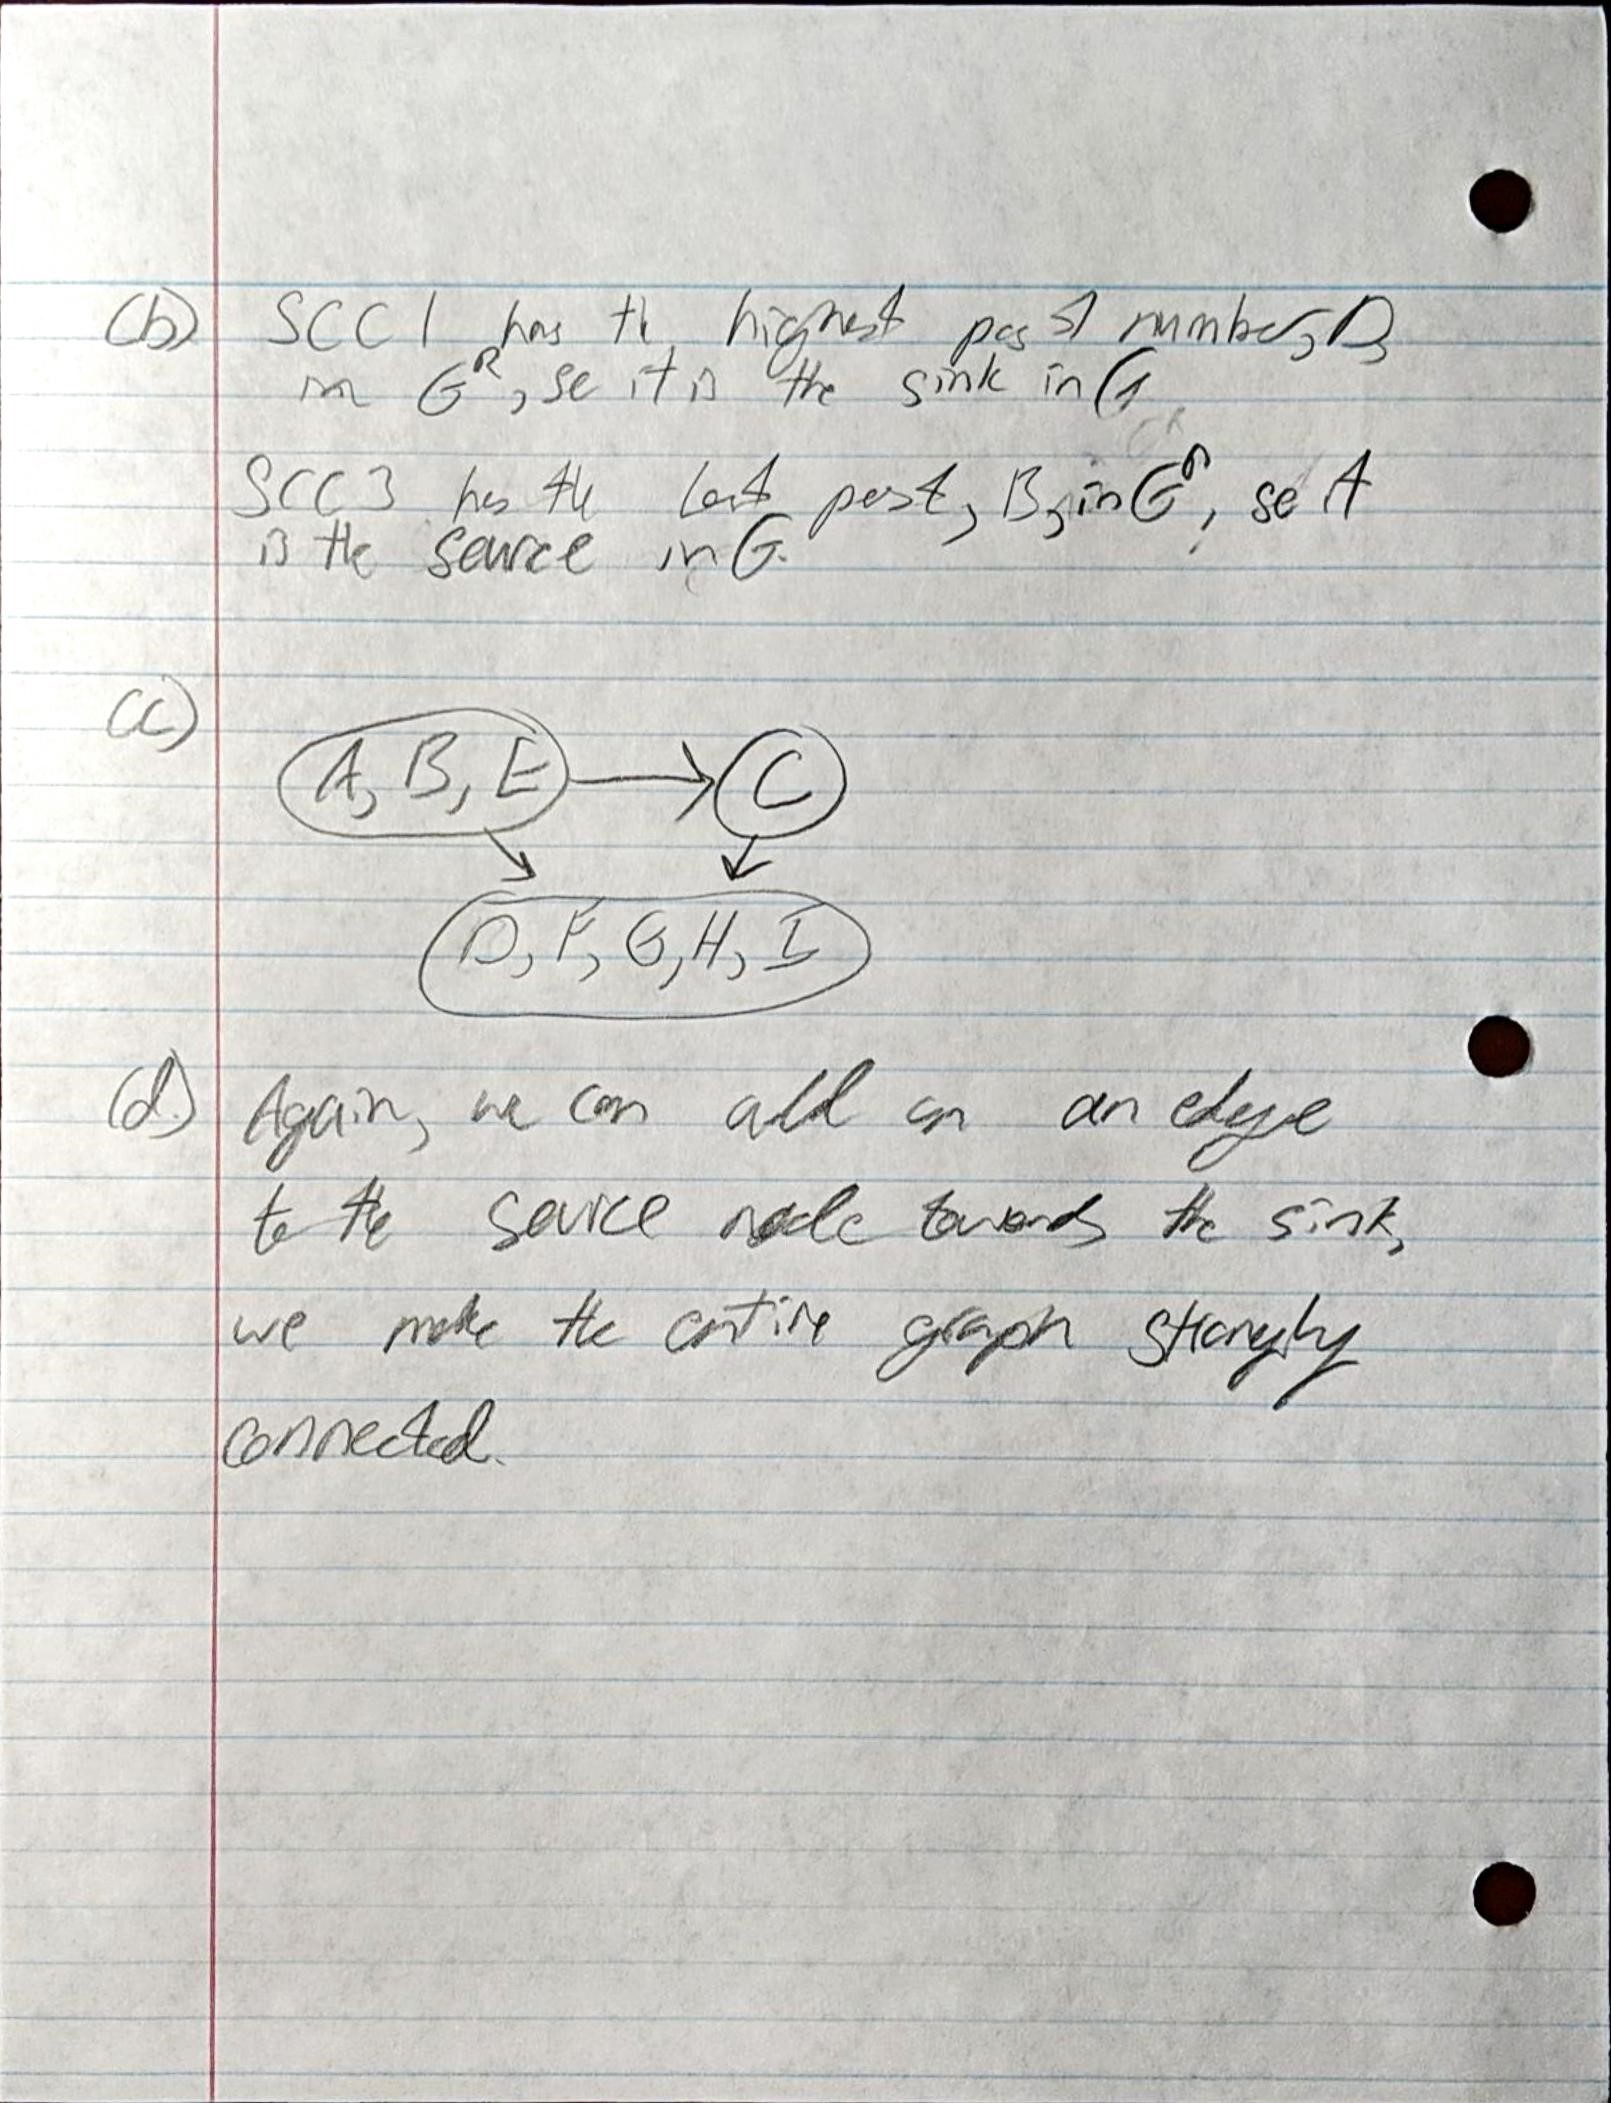 (b) SCC1 has th highest post number, D,
in G^R, so it is the sink in G
SCC3 has the last post, B, in G^R, so A
is the source in G.
(c)
A, B, E
C
D, F, G, H, I
(d) Again, we can add an an edge
to the source node towards the sink,
we make the entire graph strongly
connected.